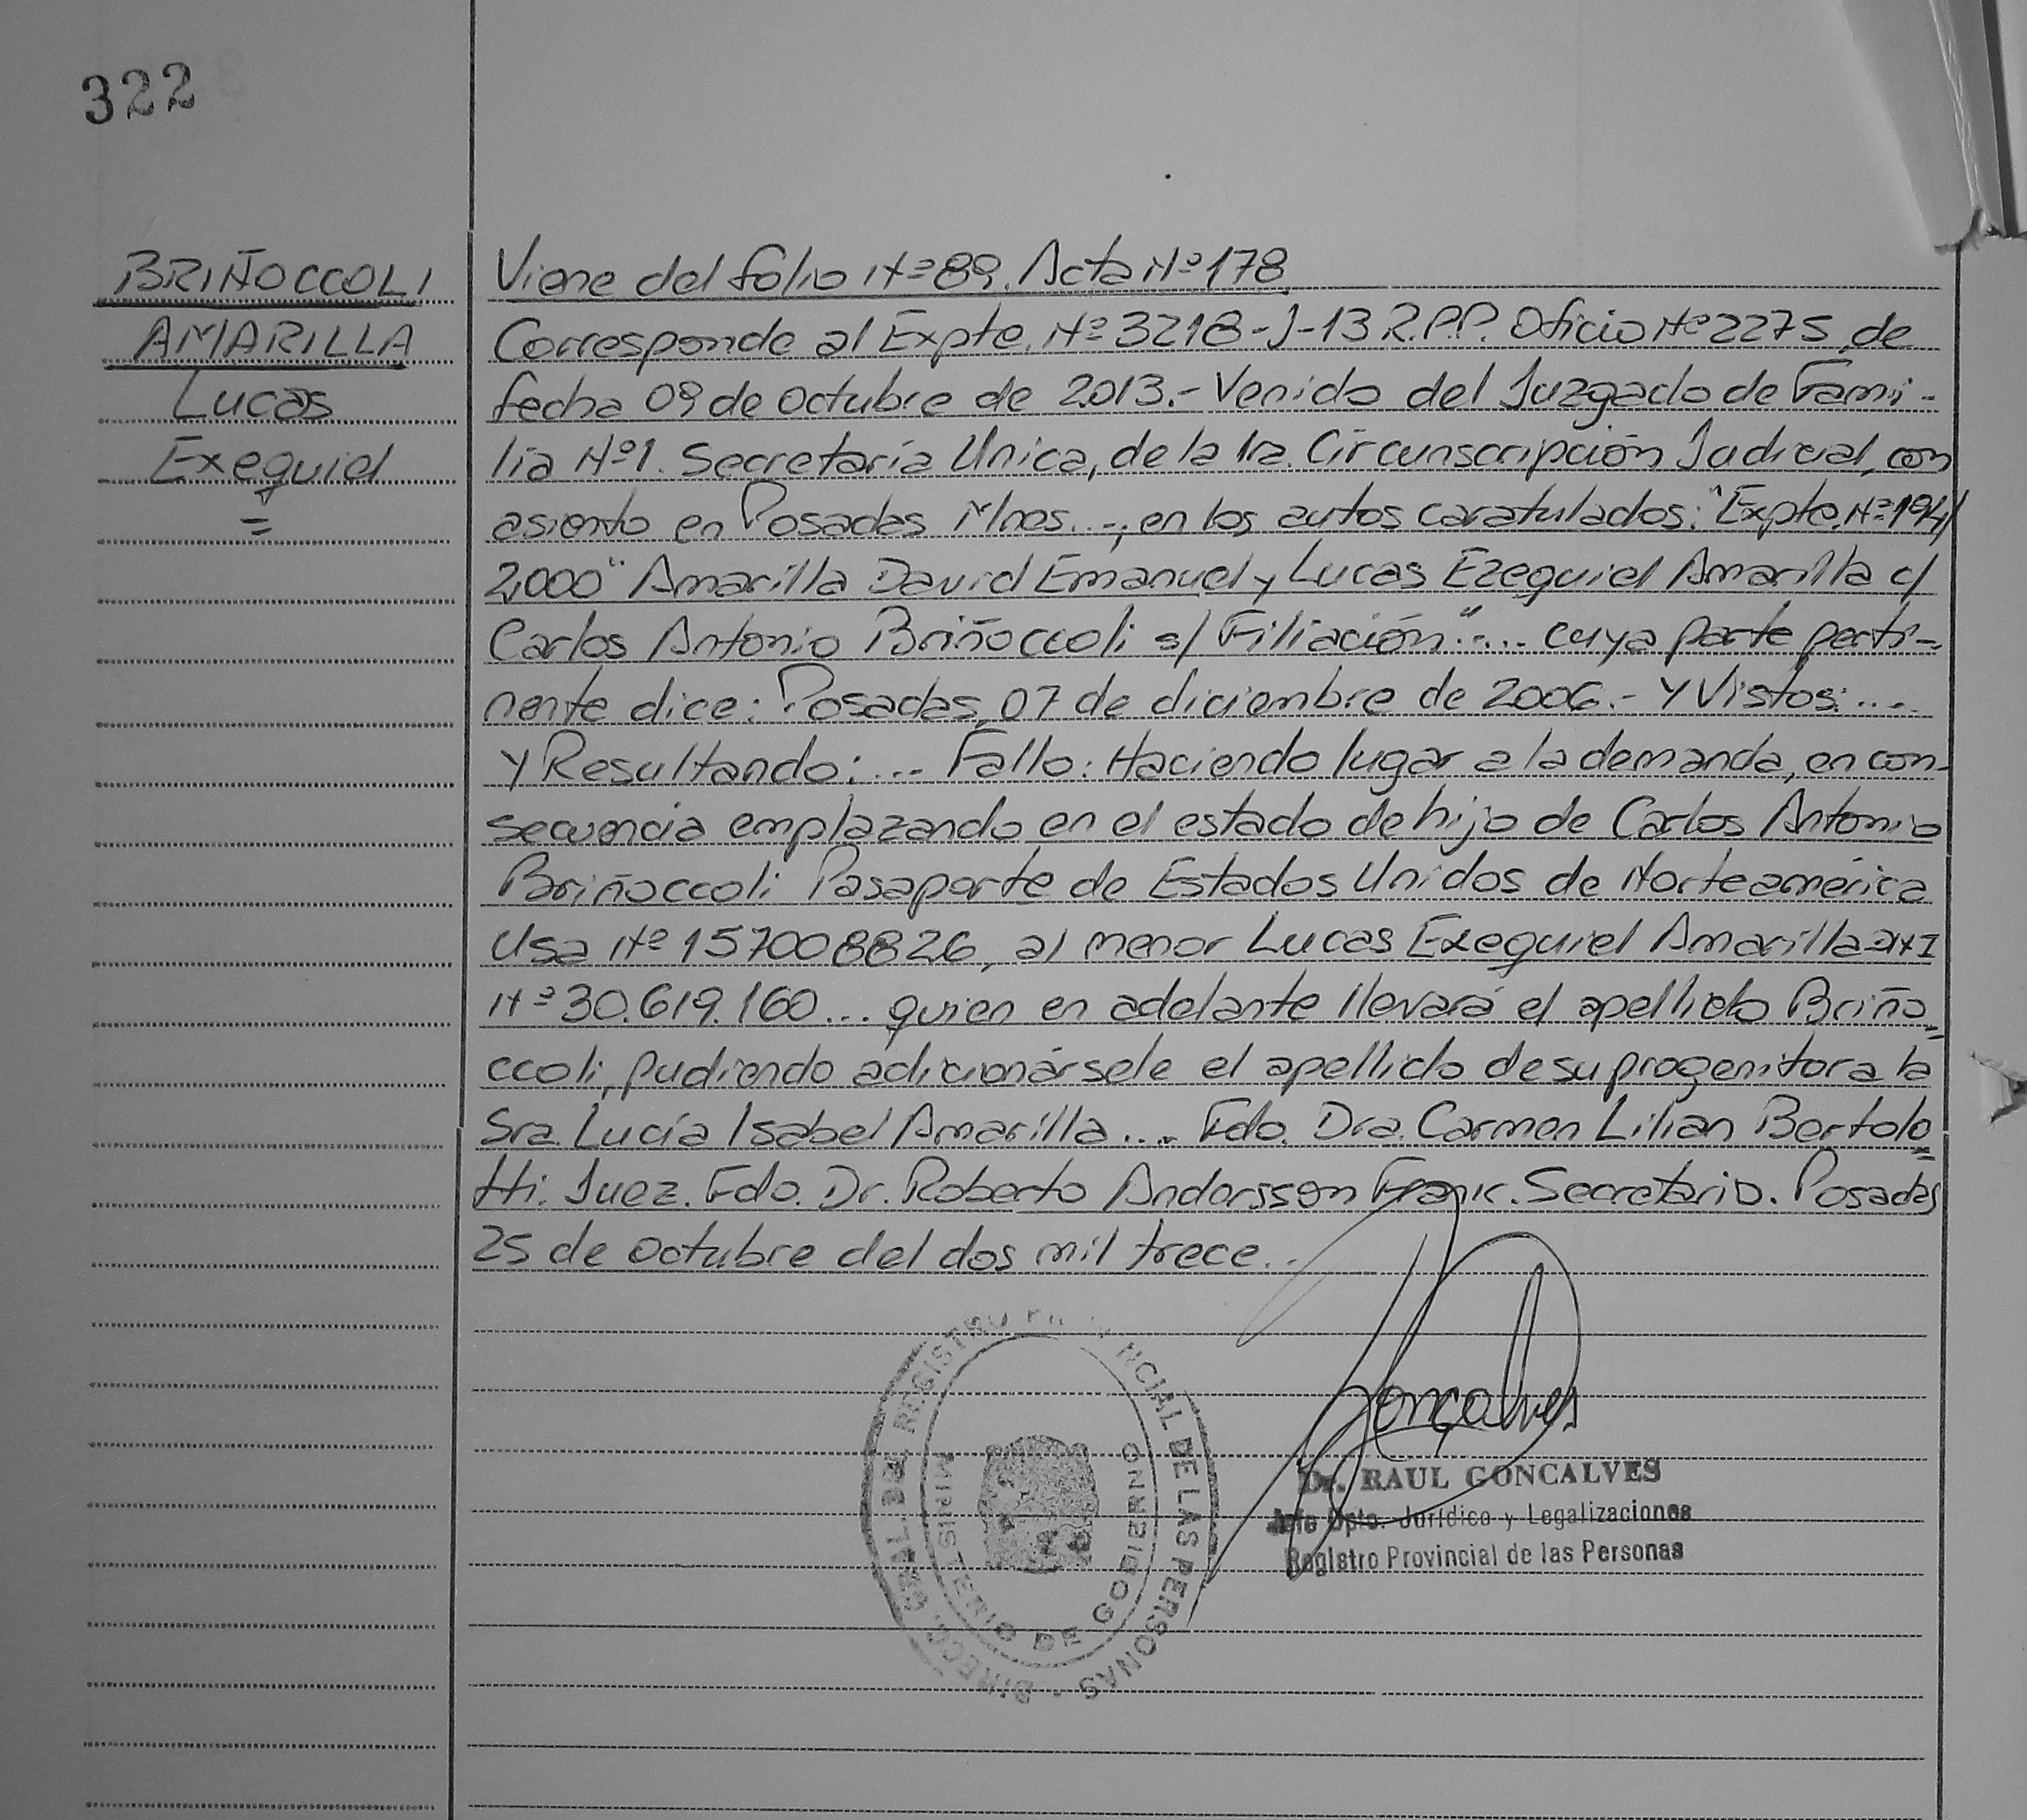 322
BRIÑOCCOLI
AMARILLA
Lucas
Exequiel
=
Viene del folio Nº 89. Acta Nº 178.
Corresponde al Expte. Nº 3218-J-13 R.P.P. Oficio Nº 2275, de
fecha 09 de octubre de 2.013.- Venido del Juzgado de Fami-
lia Nº1. Secretaría Unica, de la 1ra. Circunscripción Judicial, con
asiento en Posadas Mnes.-, en los autos caratulados: "Expte. Nº 194/
2,000" Amarilla David Emanuel y Lucas Ezequiel Amarilla c/
Carlos Antonio Briñoccoli s/ Filiación".... cuya parte perti-
nente dice: Posadas, 07 de diciembre de 2006.- Y Vistos:....
Y Resultando:... Fallo: Haciendo lugar a la demanda, en con-
secuencia emplazando en el estado de hijo de Carlos Antonio
Briñoccoli Pasaporte de Estados Unidos de Norteamérica
Usa Nº 157008826, al menor Lucas Exequiel Amarilla DNI
Nº 30.619.160... quien en adelante llevará el apellido Briño=
ccoli, pudiendo adicionársele el apellido de su progenitora la
Sra. Lucía Isabel Amarilla.... Fdo. Dra. Carmen Lilian Bertolo=
tti. Juez. Fdo. Dr. Roberto Andersson Frank. Secretario. Posadas
25 de octubre del dos mil trece..
Gonçalves
DIRECC. GRAL. DEL REGISTRO PROVINCIAL DE LAS PERSONAS
MINISTERIO DE GOBIERNO
Dr. RAUL GONCALVES
Jefe Dpto. Jurídico y Legalizaciones
Registro Provincial de las Personas